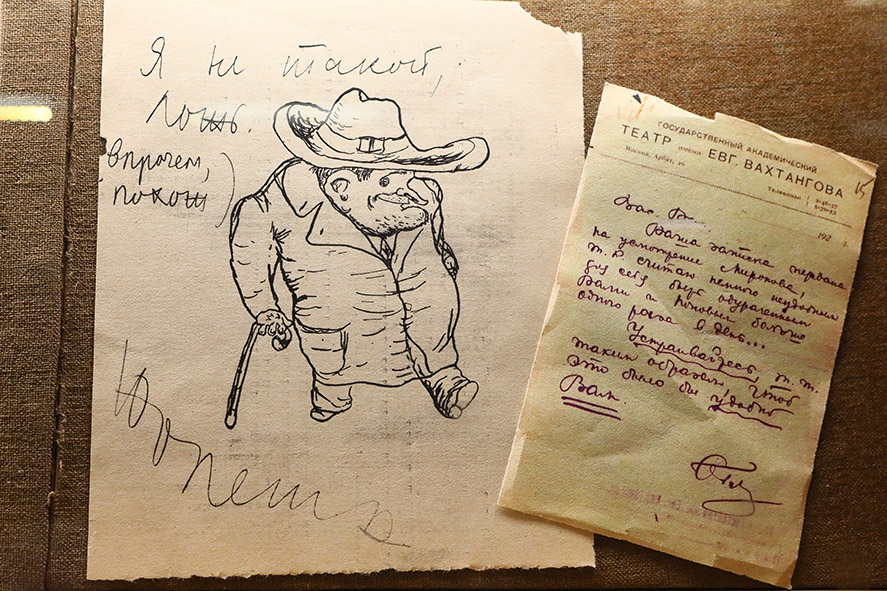 Я не такой,
Лошь.
(впрочем,
похош)
Юр Пешк
ГОСУДАРСТВЕННЫЙ АКАДЕМИЧЕСКИЙ
ТЕАТР имени ЕВГ. ВАХТАНГОВА
Москва, Арбат, 26.
Телефоны:
192 г.
Вас. В.
Ваша записка
на усмотрение Миронова,
т. В. считаю немного неудобным
для себя быть
Вами и Поповым больше
одного раза в день...
Устраивайтесь, т. т.
таким образом, чтоб
это было бы удобно
Вам.